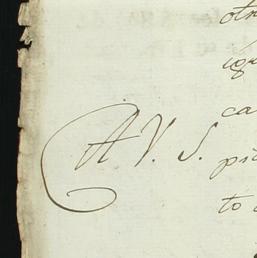 otr
igu
ca
A V. S.
pi
to